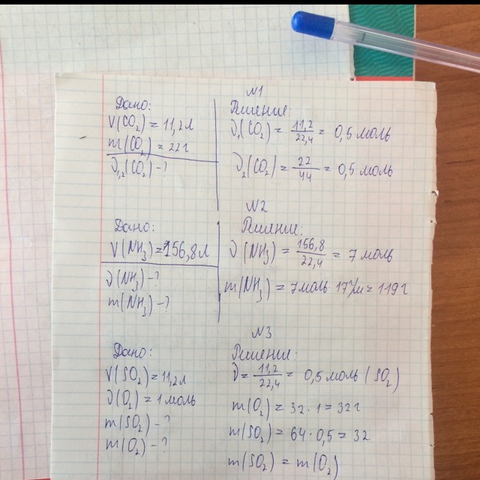 N1
Дано:
V(CO₂) = 11,2 л
m(CO₂) = 22 г
ν₁,₂(CO₂) - ?
Решение:
ν₁(CO₂) = 11,2/22,4 = 0,5 моль
ν₂(CO₂) = 22/44 = 0,5 моль
N2
Дано:
V(NH₃) = 156,8 л
ν(NH₃) - ?
m(NH₃) - ?
Решение:
ν(NH₃) = 156,8/22,4 = 7 моль
m(NH₃) = 7 моль · 17 г/м = 119 г
N3
Дано:
V(SO₂) = 11,2 л
ν(O₂) = 1 моль
m(SO₂) - ?
m(O₂) - ?
Решение:
ν = 11,2/22,4 = 0,5 моль (SO₂)
m(O₂) = 32 · 1 = 32 г
m(SO₂) = 64 · 0,5 = 32
m(SO₂) = m(O₂)